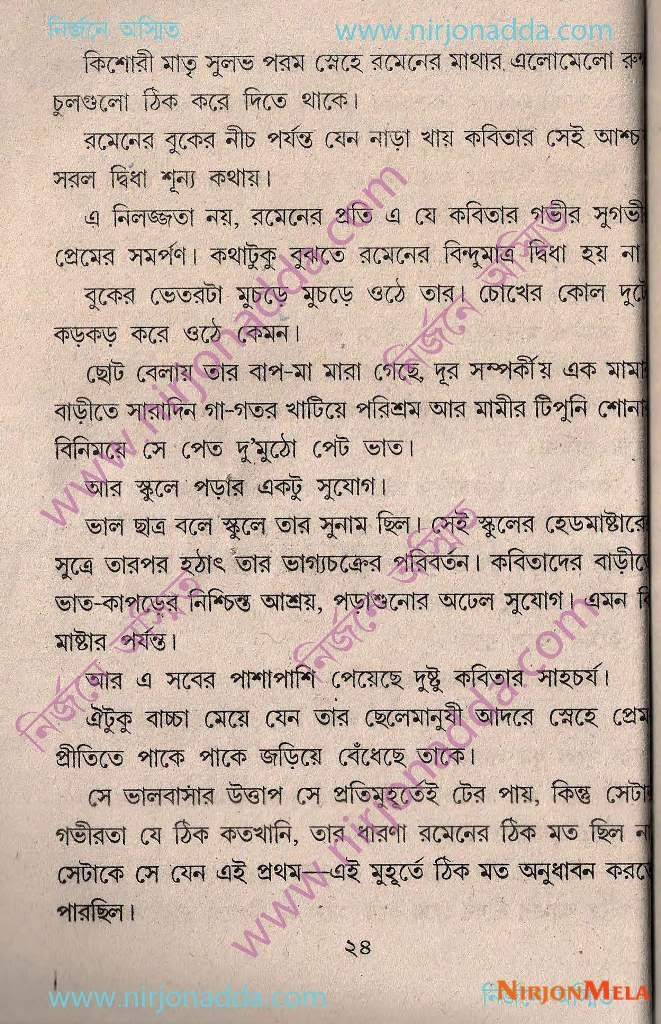 নির্জনে অস্মিত
www.nirjonadda.com
কিশোরী মাতৃ সুলভ পরম স্নেহে রমেনের মাথার এলোমেলো
চুলগুলো ঠিক করে দিতে থাকে।
রমেনের বুকের নীচ পর্যন্ত যেন নাড়া খায় কবিতার সেই
সরল দ্বিধা শূন্য কথায়।
এ নিলজ্জতা নয়, রমেনের প্রতি এ যে কবিতার গভীর
প্রেমের সমর্পণ। কথাটুকু বুঝতে রমেনের বিন্দুমাত্র দ্বিধা হয় না
বুকের ভেতরটা মুচড়ে মুচড়ে ওঠে তার। চোখের কোল
কড়কড় করে ওঠে কেমন।
ছোট বেলায় তার বাপ-মা মারা গেছে, দূর সম্পর্কীয় এক
বাড়ীতে সারাদিন গা-গতর খাটিয়ে পরিশ্রম আর মামীর টিপুনি
বিনিময়ে সে পেত দু'মুঠো পেট ভাত।
আর স্কুলে পড়ার একটু সুযোগ।
ভাল ছাত্র বলে স্কুলে তার সুনাম ছিল। সেই স্কুলের
সুত্রে তারপর হঠাৎ তার ভাগ্যচক্রের পরিবর্তন। কবিতাদের
ভাত-কাপড়ের নিশ্চিন্ত আশ্রয়, পড়াশুনোর অঢেল সুযোগ। এমন
মাষ্টার পর্যন্ত।
আর এ সবের পাশাপাশি পেয়েছে দুষ্টু কবিতার সাহচর্য।
ঐটুকু বাচ্চা মেয়ে যেন তার ছেলেমানুষী আদরে স্নেহে প্রেম
প্রীতিতে পাকে পাকে জড়িয়ে বেঁধেছে তাকে।
সে ভালবাসার উত্তাপ সে প্রতিমুহূর্তেই টের পায়, কিন্তু
গভীরতা যে ঠিক কতখানি, তার ধারণা রমেনের ঠিক মত ছিল
সেটাকে সে যেন এই প্রথম—এই মুহূর্তে ঠিক মত অনুধাবন
পারছিল।
২৪
www.nirjonadda.com
NIRJONMELA
www.nirjonadda.com
নির্জনে অস্মিত
নির্জনে অস্মিত
নির্জনে অস্মিত
www.nirjonadda.com